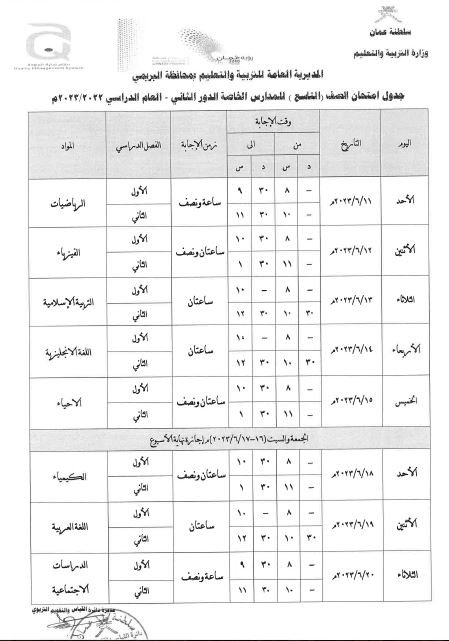 سلطنة عمان
وزارة التربية والتعليم
المديرية العامة للتربية والتعليم بمحافظة البريمي
جدول امتحان الصف (التاسع) للمدارس الخاصة الدور الثاني - العام الدراسي ٢٠٢٣/٢٠٢٢م
اليوم التاريخ وقت الإجابة زمن الإجابة الفصل الدراسي المواد
من الى
د س د س
الأحد ٢٠٢٣/٦/١١م – ٨ ٣٠ ٩ ساعة ونصف الأول الرياضيات
– ١٠ ٣٠ ١١ الثاني
الأثنين ٢٠٢٣/٦/١٢م – ٨ ٣٠ ١٠ ساعتان ونصف الأول الفيزياء
– ١١ ٣٠ ١ الثاني
الثلاثاء ٢٠٢٣/٦/١٣م – ٨ – ١٠ ساعتان الأول التربية الإسلامية
٣٠ ١٠ ٣٠ ١٢ الثاني
الأربعاء ٢٠٢٣/٦/١٤م – ٨ – ١٠ ساعتان الأول اللغة الانجليزية
٣٠ ١٠ ٣٠ ١٢ الثاني
الخميس ٢٠٢٣/٦/١٥م – ٨ ٣٠ ١٠ ساعتان ونصف الأول الاحياء
– ١١ ٣٠ ١ الثاني
الجمعة والسبت (١٦-٢٠٢٣/٦/١٧م) إجازة نهاية الأسبوع
الأحد ٢٠٢٣/٦/١٨م – ٨ ٣٠ ١٠ ساعتان ونصف الأول الكيمياء
– ١١ ٣٠ ١ الثاني
الأثنين ٢٠٢٣/٦/١٩م – ٨ – ١٠ ساعتان الأول اللغة العربية
٣٠ ١٠ ٣٠ ١٢ الثاني
الثلاثاء ٢٠٢٣/٦/٢٠م – ٨ ٣٠ ٩ ساعة ونصف الأول الدراسات الاجتماعية
– ١٠ ٣٠ ١١ الثاني
مديرة دائرة القياس والتقويم التربوي